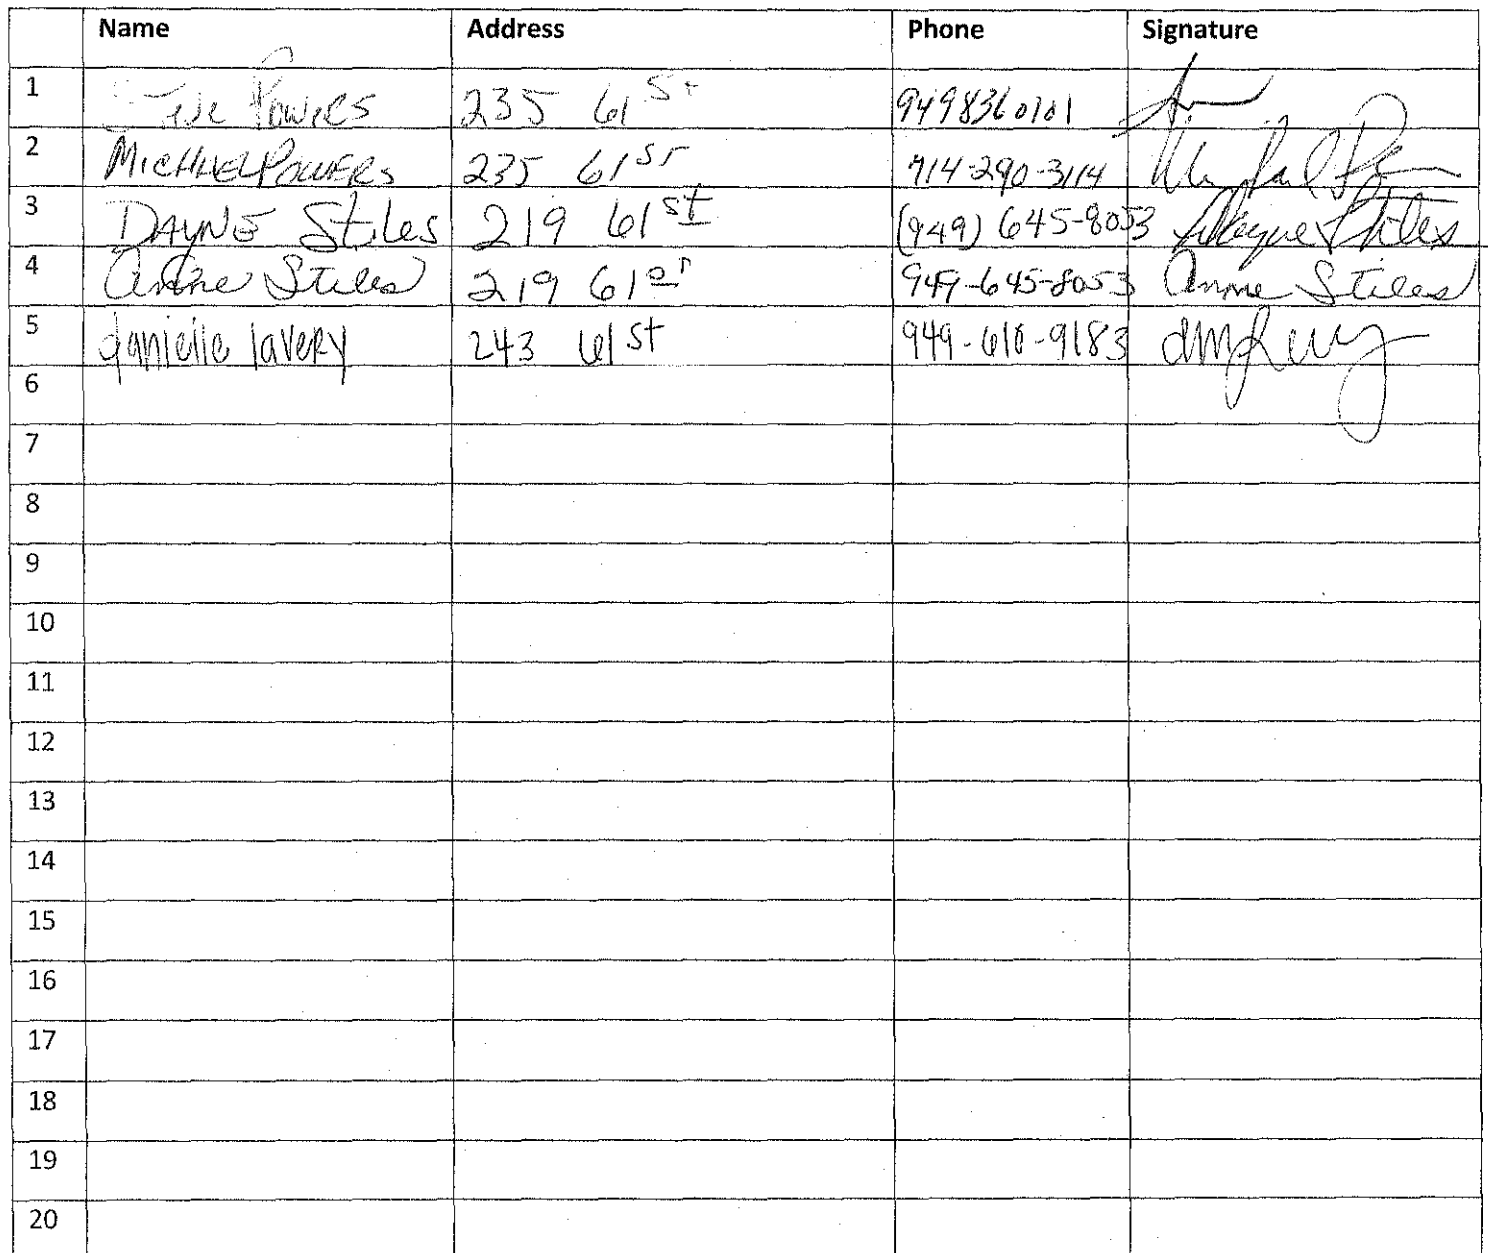 Name Address Phone Signature
1 Steve Powers 235 61 St 9498360101
2 Michael Powers 235 61 St 714-290-3114
3 DAYNE Stiles 219 61st (949) 645-8053 Dayne Stiles
4 Anne Stiles 219 61st 949-645-8053 Anne Stiles
5 danielle lavery 243 61st 949-610-9183
6
7
8
9
10
11
12
13
14
15
16
17
18
19
20